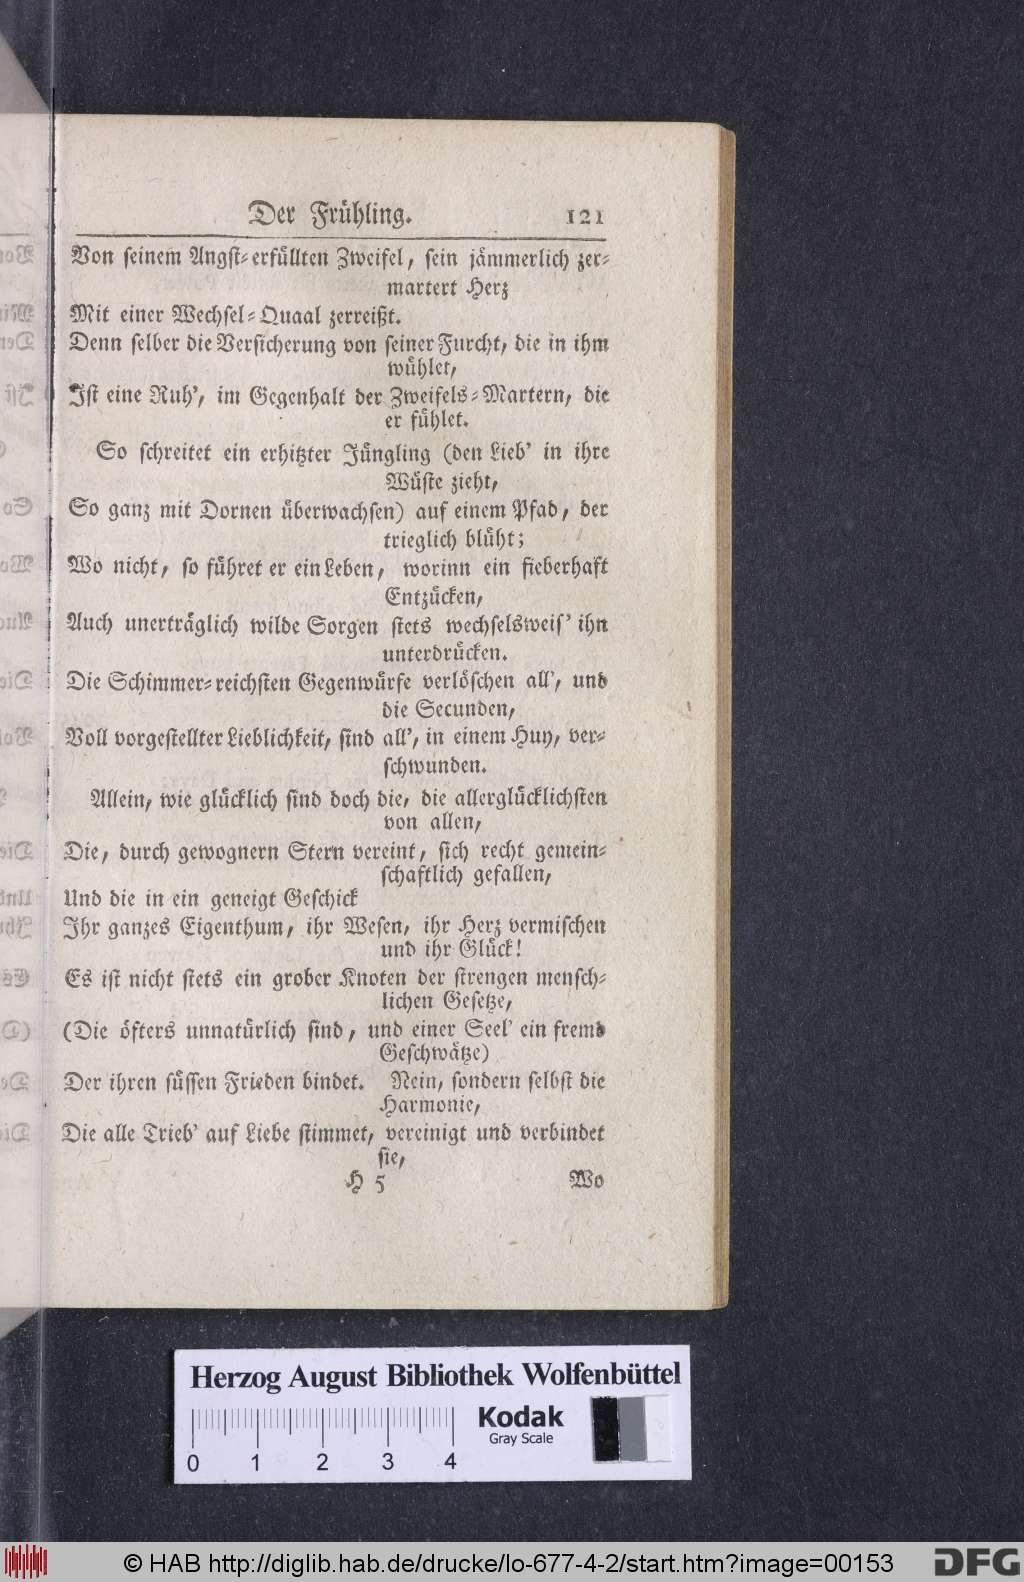 Der Frühling. 121
Von seinem Angst-erfüllten Zweifel, sein jämmerlich zer-
martert Herz
Mit einer Wechsel-Quaal zerreißt.
Denn selber die Versicherung von seiner Furcht, die in ihm
wühlet,
Ist eine Ruh', im Gegenhalt der Zweifels-Martern, die
er fühlet.
So schreitet ein erhitzter Jüngling (den Lieb' in ihre
Wüste zieht,
So ganz mit Dornen überwachsen) auf einem Pfad, der
trieglich blüht;
Wo nicht, so führet er ein Leben, worinn ein fieberhaft
Entzücken,
Auch unerträglich wilde Sorgen stets wechselsweis' ihn
unterdrücken.
Die Schimmer-reichsten Gegenwürfe verlöschen all', und
die Secunden,
Voll vorgestellter Lieblichkeit, sind all', in einem Huy, ver-
schwunden.
Allein, wie glücklich sind doch die, die allerglücklichsten
von allen,
Die, durch gewognern Stern vereint, sich recht gemein-
schaftlich gefallen,
Und die in ein geneigt Geschick
Ihr ganzes Eigenthum, ihr Wesen, ihr Herz vermischen
und ihr Glück!
Es ist nicht stets ein grober Knoten der strengen mensch-
lichen Gesetze,
(Die öfters unnatürlich sind, und einer Seel' ein fremd
Geschwätze)
Der ihren süssen Frieden bindet. Nein, sondern selbst die
Harmonie,
Die alle Trieb' auf Liebe stimmet, vereinigt und verbindet
sie,
H 5 Wo
Herzog August Bibliothek Wolfenbüttel
Kodak
Gray Scale
0 1 2 3 4
© HAB http://diglib.hab.de/drucke/lo-677-4-2/start.htm?image=00153
DFG